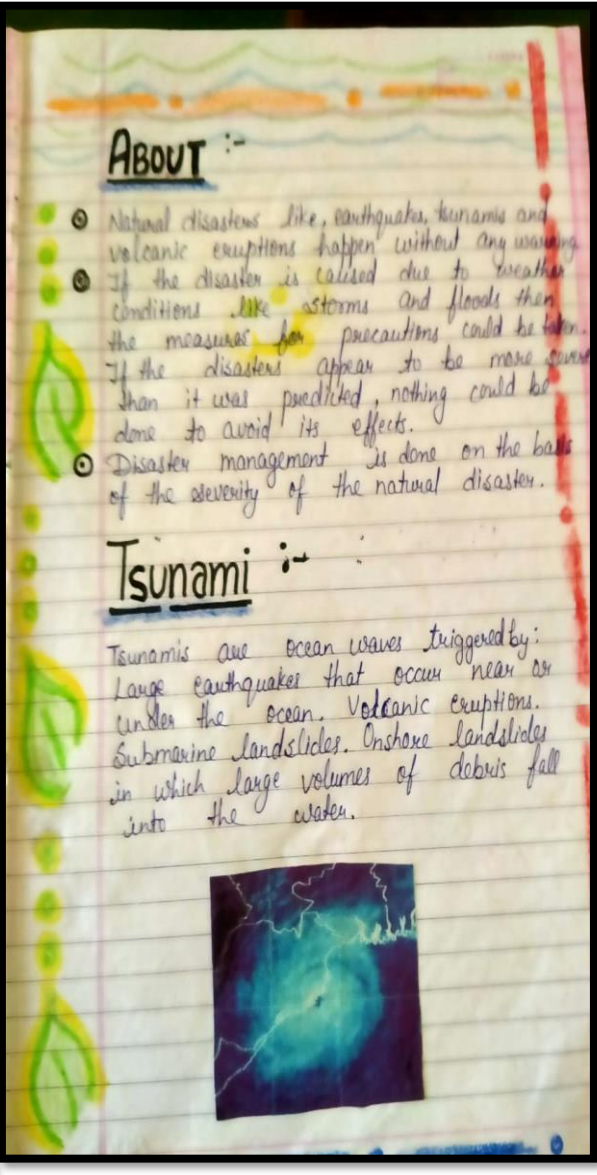 ABOUT :-
Natural disasters like, earthquakes, tsunamis and
volcanic eruptions happen without any warning
If the disaster is caused due to weather
conditions like storms and floods then
the measures for precautions could be taken.
If the disasters appear to be more severe
than it was predicted, nothing could be
done to avoid its effects.
Disaster management is done on the basis
of the severity of the natural disaster.
Tsunami :-
Tsunamis are ocean waves triggered by:
Large earthquakes that occur near or
under the ocean. Volcanic eruptions.
Submarine landslides. Onshore landslides
in which large volumes of debris fall
into the water.